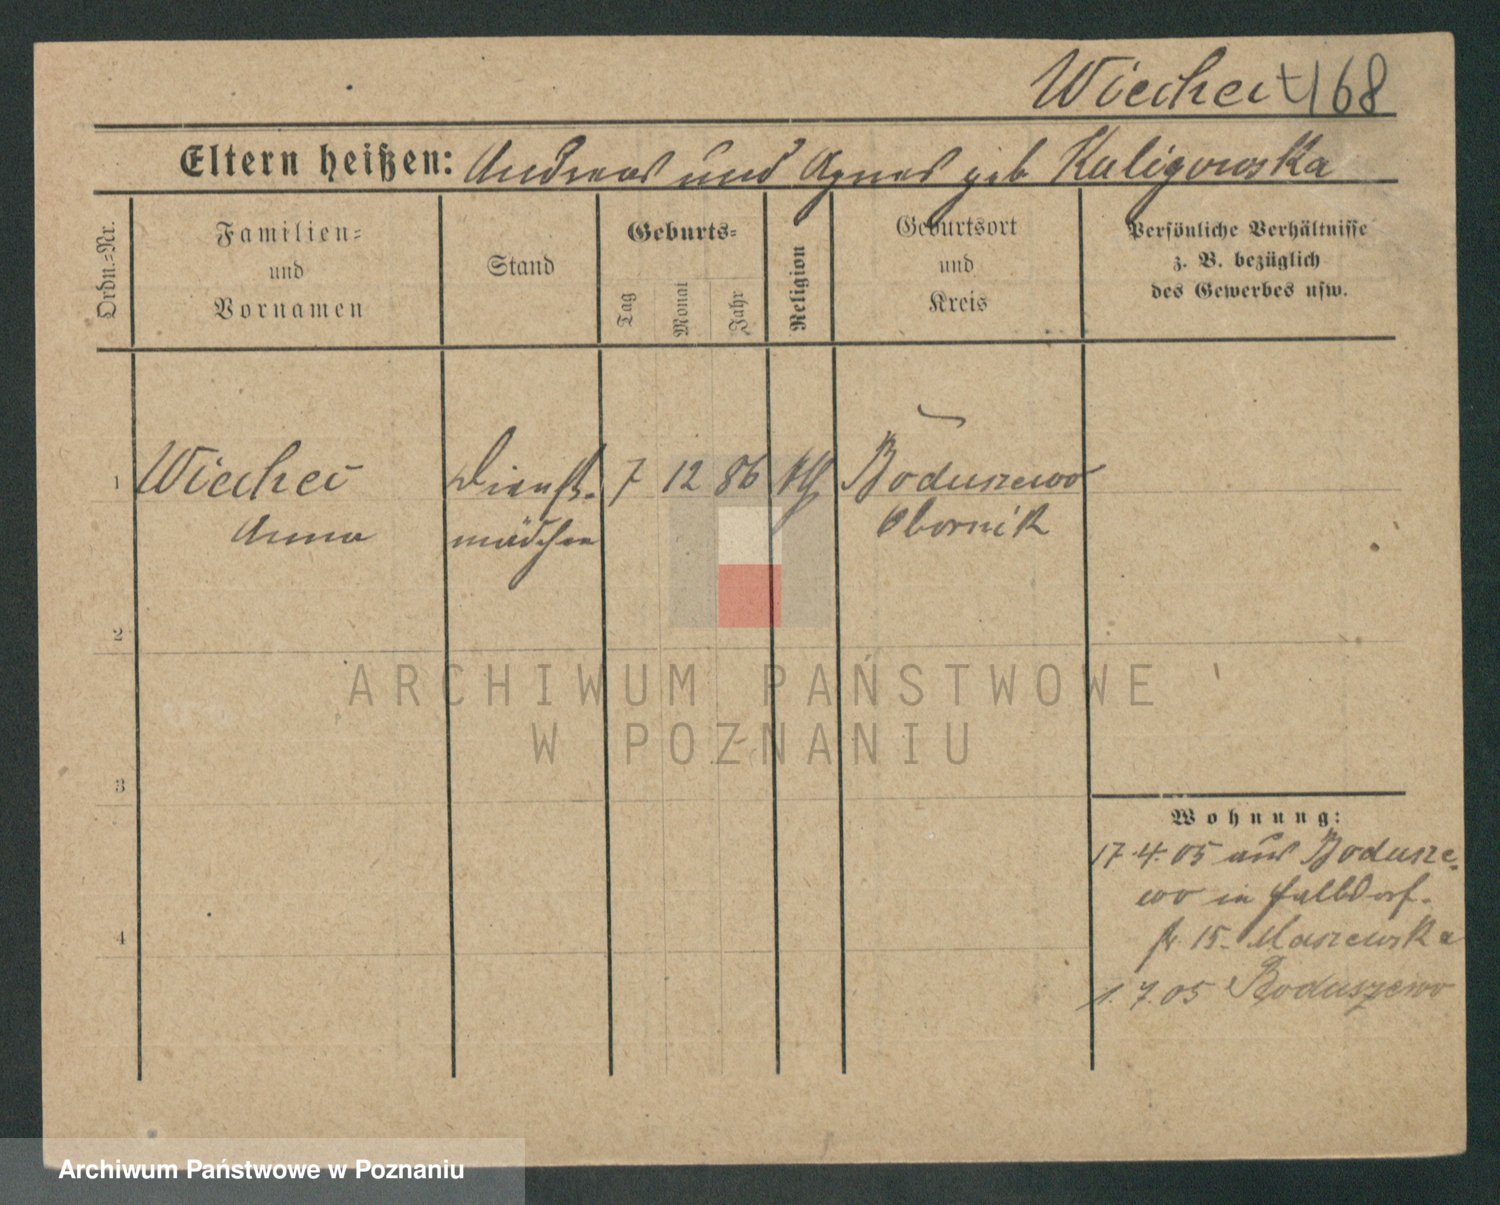 Wiecheć 168
Eltern heißen: Andreas und Agnes geb Kuligowska
Ordn.=Nr.
Familien=
und
Vornamen
Stand
Geburts=
Tag
Monat
Jahr
Religion
Geburtsort
und
Kreis
Persönliche Verhältnisse
z. B. bezüglich
des Gewerbes usw.
1 Wiecheć Dienst- 7 12 86 kth Boduszewo
Anna mädchen Obornik
2
3
4
Wohnung:
17.4.05 aus Bodusze-
wo in Halbdorf-
str 15. Maszewska
1.7.05 Boduszewo
ARCHIWUM PAŃSTWOWE
W POZNANIU
Archiwum Państwowe w Poznaniu